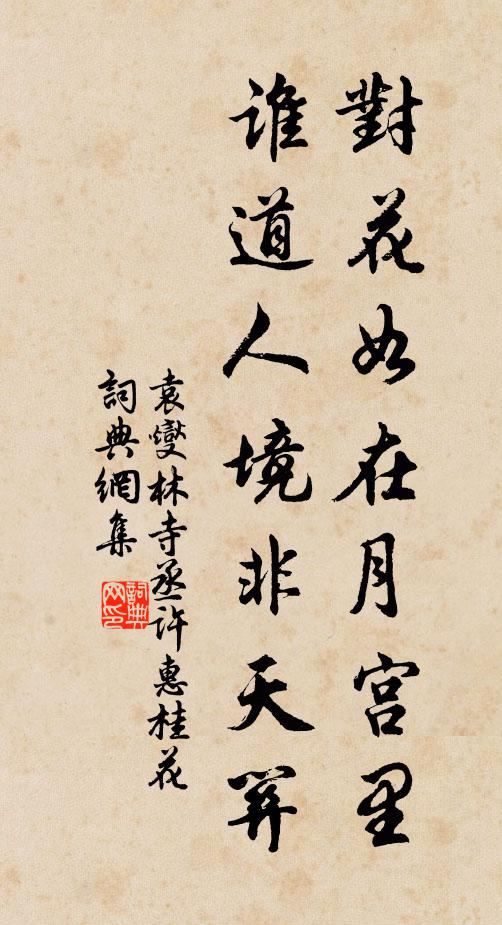 對花如在月宫里
誰道人境非天界
袁燮林寺丞許惠桂花
詞典網集
詞典网印